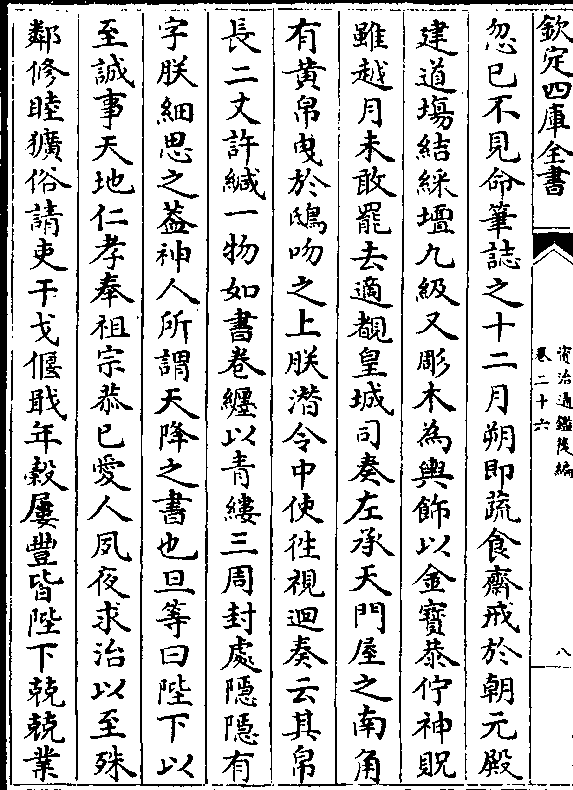 欽定四庫全書
資治通鑑後編
卷二十六
八
忽已不見命筆誌之十二月朔即蔬食齋戒於朝元殿
建道場結綵壇九級又彫木為輿飾以金寶恭佇神貺
雖越月未敢罷去適覩皇城司奏左承天門屋之南角
有黃帛曵於鴟吻之上朕潛令中使徃視迴奏云其帛
長二丈許緘一物如書卷纏以青縷三周封處隱隱有
字朕細思之葢神人所謂天降之書也旦等曰陛下以
至誠事天地仁孝奉祖宗恭已愛人夙夜求治以至殊
鄰修睦獷俗請吏干戈偃戢年穀屢豐皆陛下兢兢業